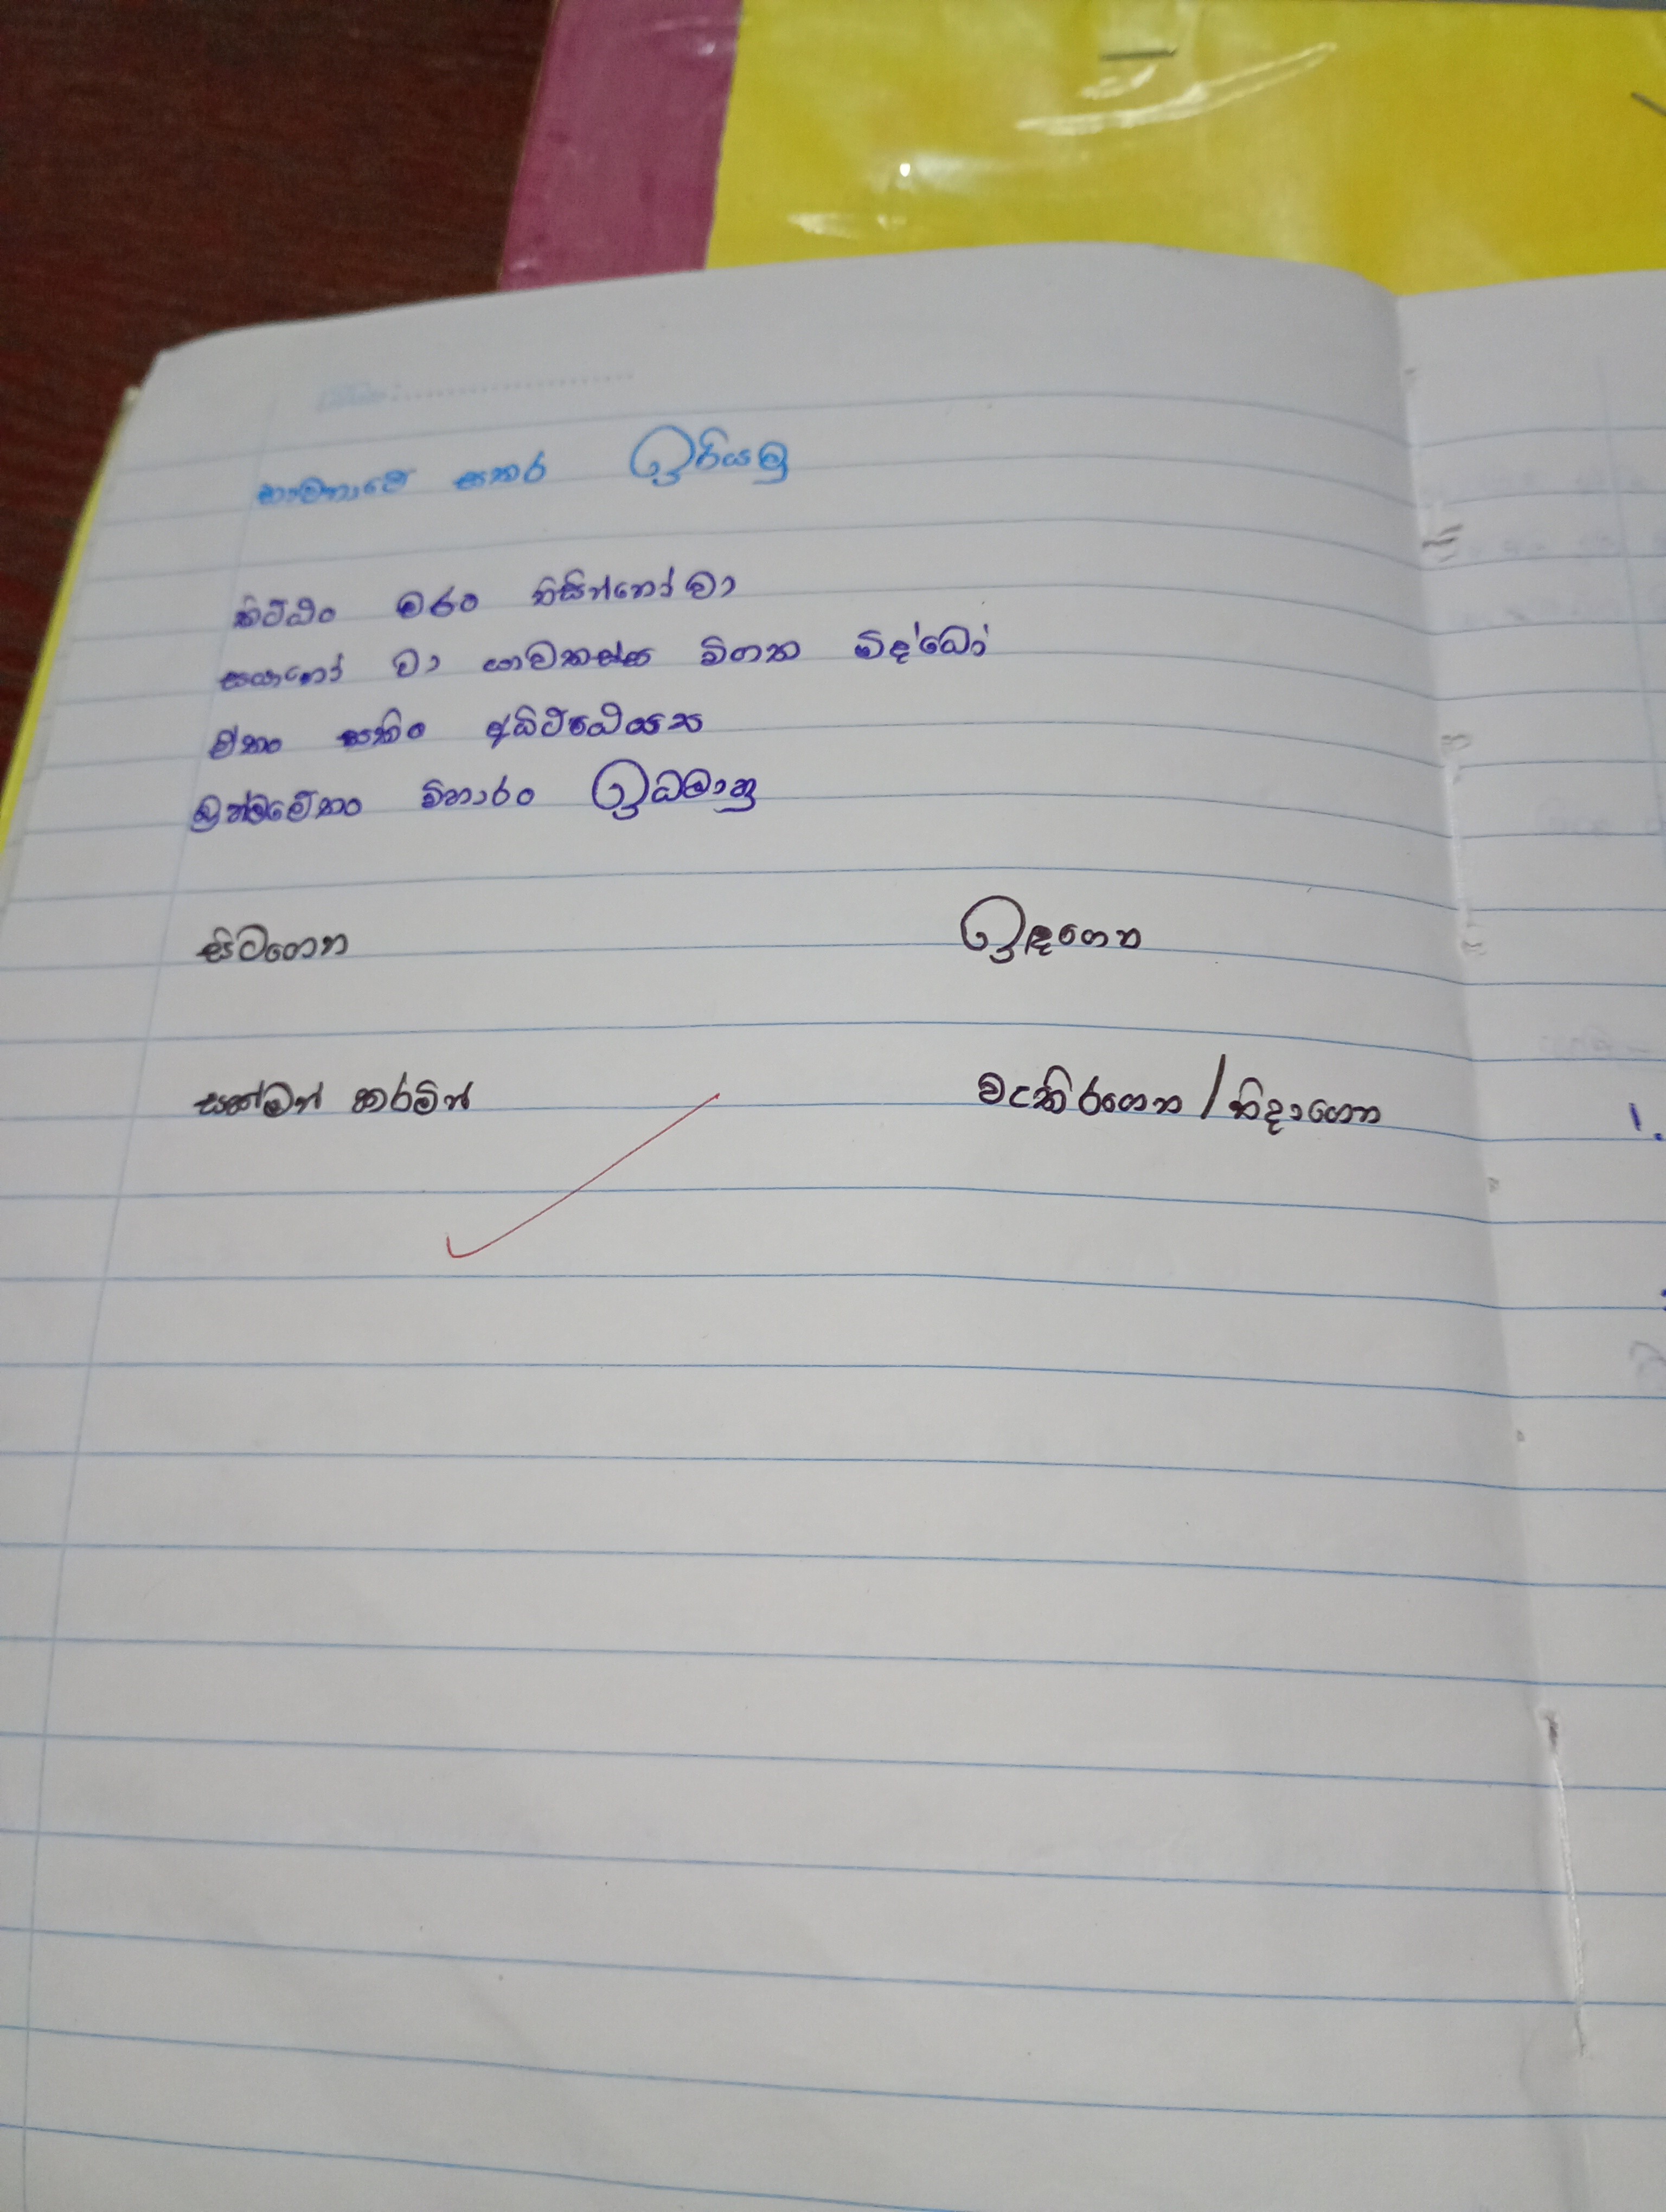 භාවනාවේ සතර ඉරියමු
තිට්ඨං චරං නිසින්නෝ වා
සයානෝ වා යාවතස්ස විගත මිද්ධෝ
ඒතං සතිං අධිට්ඨෙයස
බ්‍රහ්මමේතං විහාරං ඉධමාහු
සිටගෙන ඉඳගෙන
සක්මන් කරමින් වැතිරගෙන / නිදාගෙන
1.